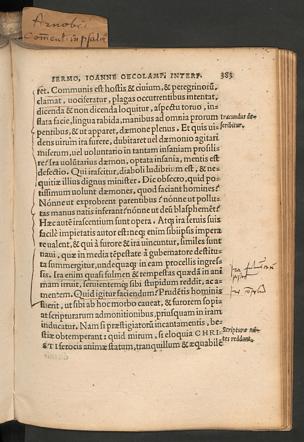 Arnobij
Coment. in psal
SERMO, IOANNE OECOLAMP. INTERP. 383
ret. Communis est hostis & ciuium, & peregrinorũ,
clamat, uociferatur, plagas occurrentibus intentat,
dicenda & non dicenda loquitur, aspectu toruo, in-
flata facie, lingua rabida, manibus ad omnia prorum
pentibus, & ut apparet, dæmone plenus. Et quis ui-
dens uirum ira furere, dubitaret uel dæmonio agitari
miserum, uel uoluntario in tantam insaniam prosili-
re? Ira uolũtarius dæmon, optata insania, mentis est
defectio. Qui irascitur, diaboli ludibrium est, & ne-
quitiæ illius dignus minister. Dic obsecro, quid po-
tissimum uolunt dæmones, quod faciant homines?
Nónne ut exprobrent parentibus? nónne ut pollu-
tas manus natis inferant? nónne ut deũ blasphemẽt?
Hæc autẽ irascentium sunt opera. Atq; ira seruis fuis
facilè impietatis autor est: neq; enim sibijpsis impera
re ualent, & qui à furore & ira uincuntur, similes sunt
naui, quæ in media tẽpestate à gubernatore destitu-
ta summergitur, undequaq; in eam procellis ingres-
sis. Ira enim quasi fulmen & tempestas quædã in ani
mam irruit, seruientemq; sibi stupidum reddit, ac a-
mentem. Quid igitur faciendum? Prudẽtis hominis
fuerit, ut sibi ab hoc morbo caueat, & furorem sopi-
at scripturarum admonitionibus, priusquam in iram
inducatur. Nam si præstigiatorũ incantamentis, be-
stiæ obtemperant: quid mirum, si eloquia CHRI-
STI ferocis animæ statum, tranquillum & æquabile
Iracundus de-
scribitur.
Scripturæ mi-
tes reddunt.